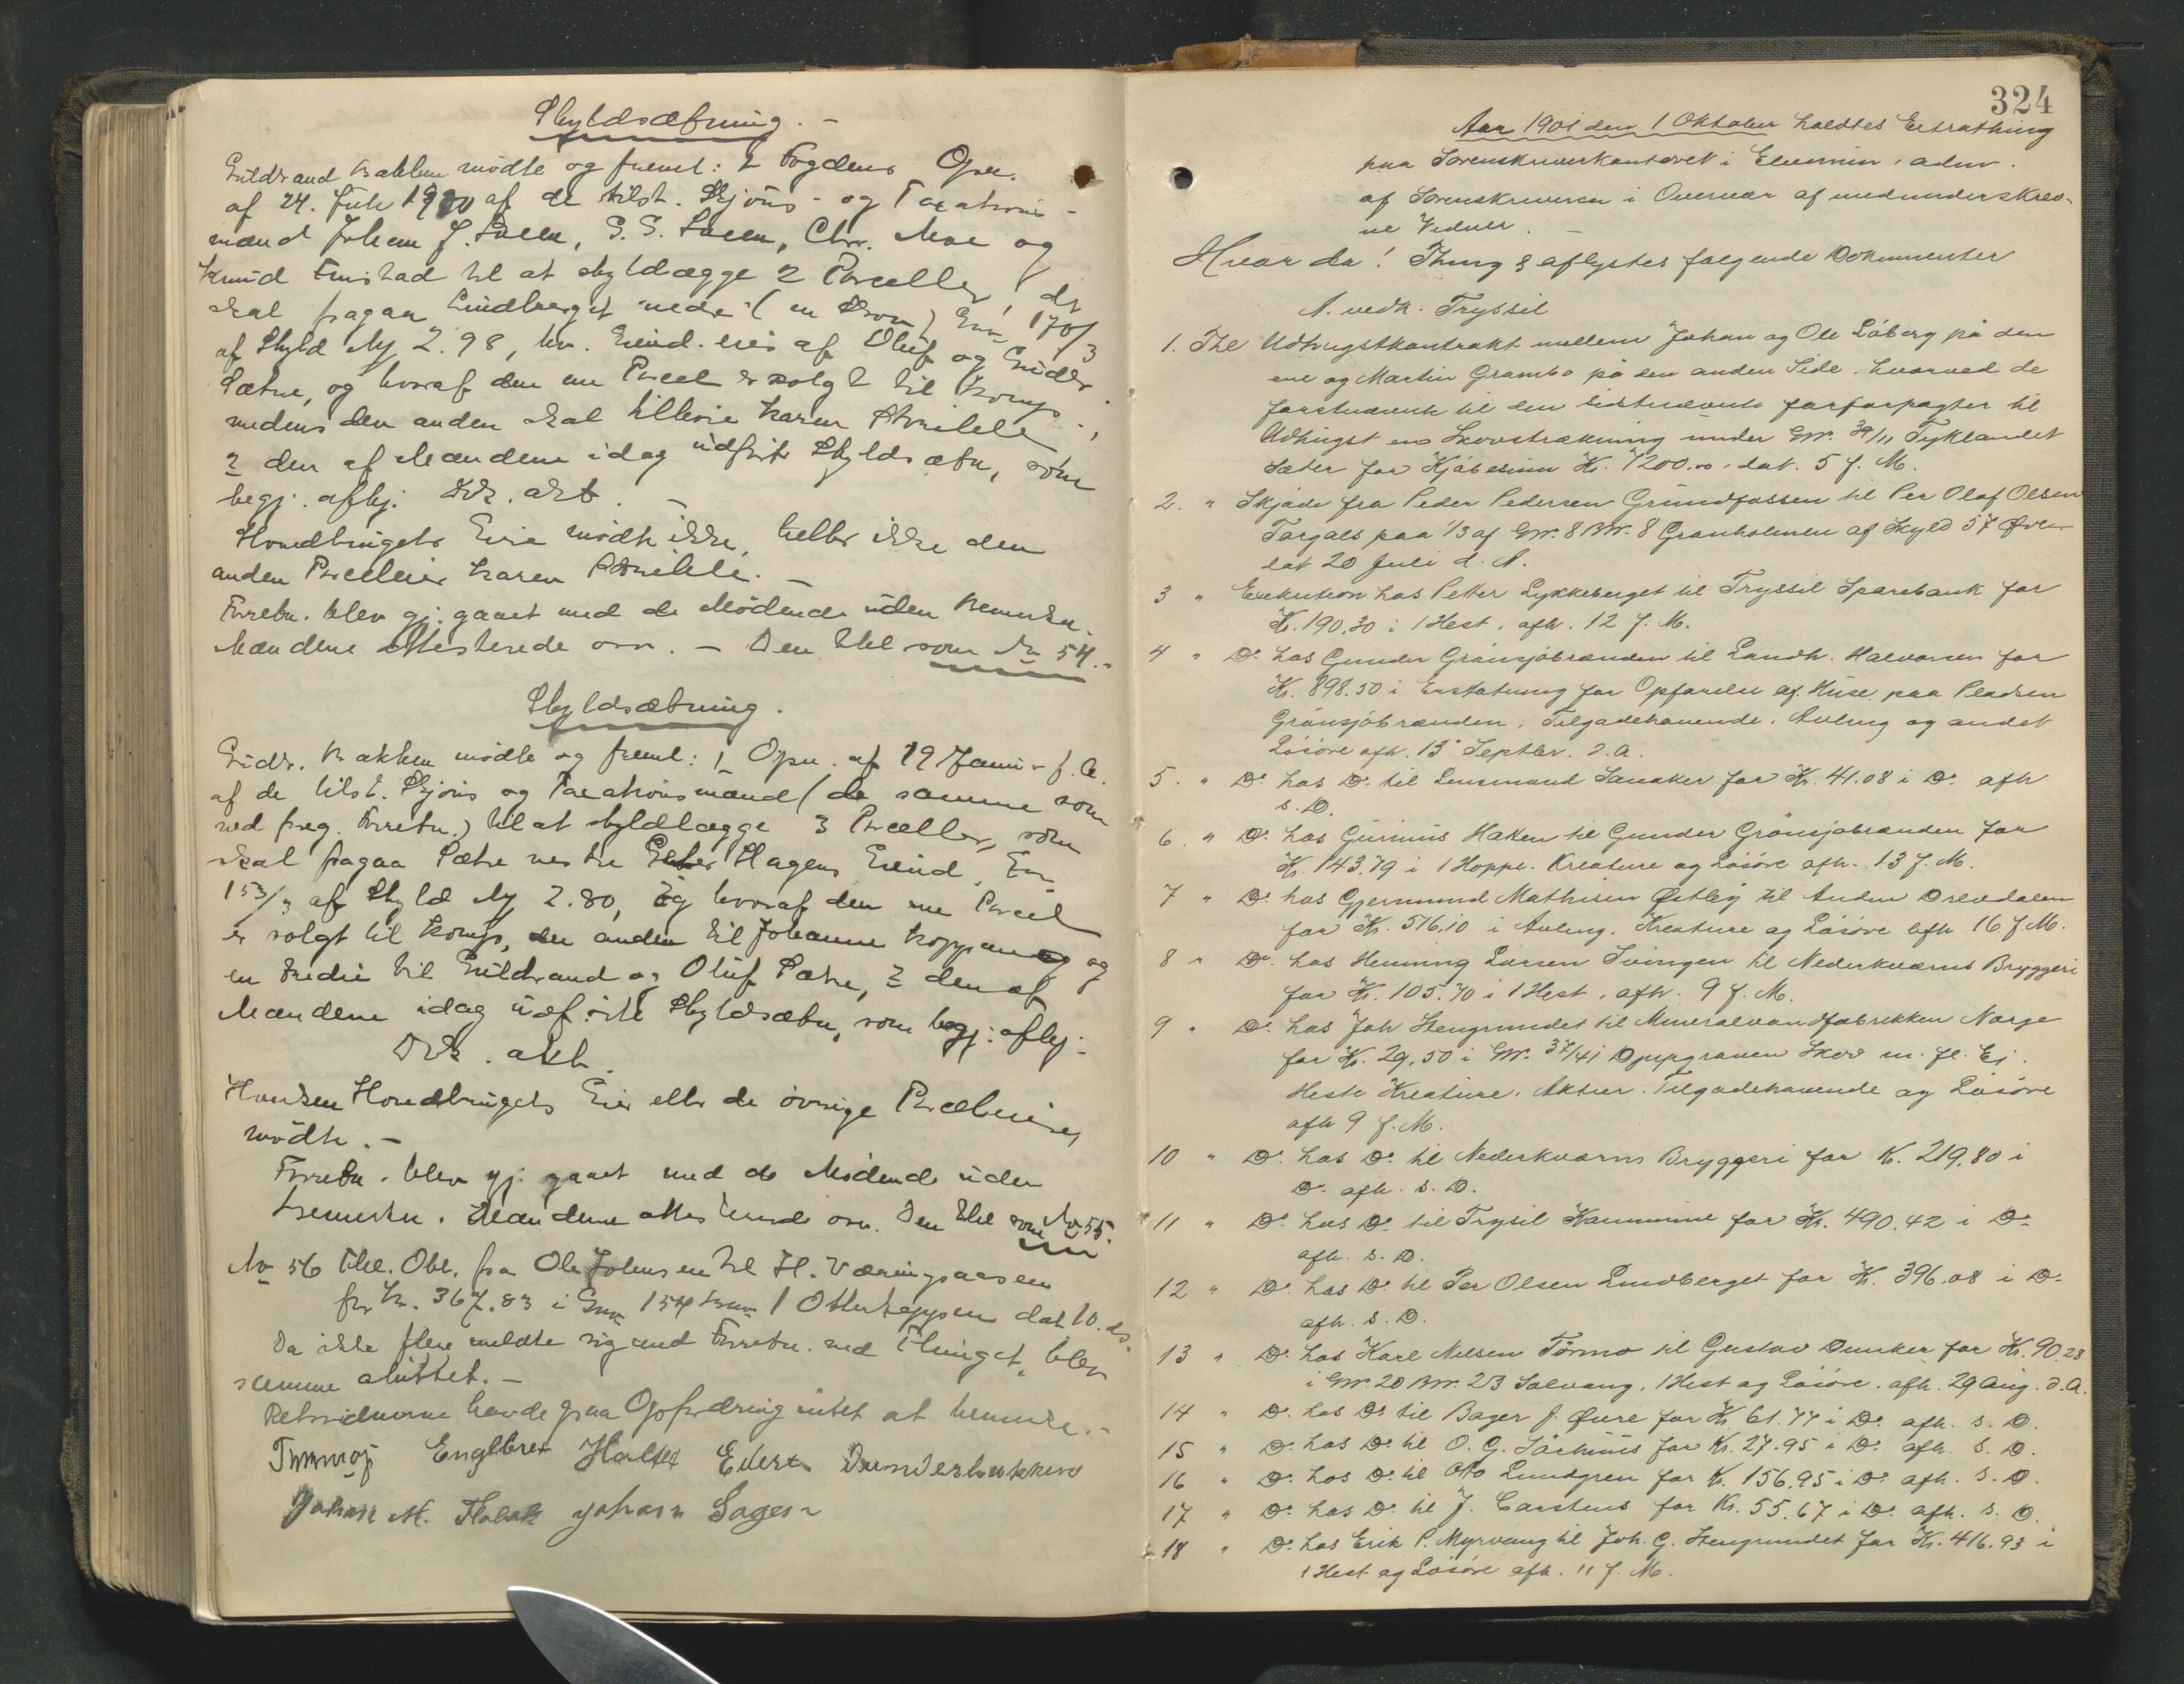 Skyldsætning. -
Guldbrand Bakken mødte og freml: 1 Fogdens Opn.
af 24. Juli 1900 af de tilst. Skjöns- og Taxations-
mænd Johan J. Løken, S. S. Løken, Chr. Moe og
Knud til at skyldlægge 2 Parceller, der
skal fragaa Lindberget nedre (en Skov) Gno 170/3
af Skyld My 2.98, hv. Eiend. eies af Oluf og Guldbr.
Sætre, og hvoraf den ene Parcel er solgt til Komp.,
medens den anden skal tilhøre Karen
2 den af Mændene idag udførte Skyldsætn, som
begj. aflg. Dok. akt. -
Hovedbrugets Eier mödte ikke, heller ikke den
anden Parceleier Karen -
Forretn. blev gj: gaaet med de Mødende uden Bemerkn.
Mændene attesterede osv. - Den thl som No 54. -
Skyldsætning.
Guldr. Bakken mødte og freml: 1 Opn. af 19 Januar f. A.
af de tilst. Skjöns og Taxationsmænd (de samme som
ved foreg. Forretn.) til at skyldlægge 3 Parceller, som
skal fragaa Sætre vestre Hagens Eiend, Gno
153/3 af Skyld My 2.80, og hvoraf den ene Parcel
er solgt til Komp, den anden til Johanne Koppang og
en tredie til Guldbrand og Oluf Sætre, 2 den af
Mændene idag udførte Skyldsætn, som begj: aflg:
Dok. akt.
Hverken Hovedbrugets Eier eller de øvrige Parceleiere
mödte. -
Forretn. blev gj. gaaet med de Mødende uden
Bemerkn. Mændene attesterede osv. Den thl som No 55.
No 56 Thl. Obl. fra Ole Johnsen til H. Væringsaasen
for Kr. 367.83 i Gno 154 Bno 1 Otterkeppen dat 10. ds.
Da ikke flere meldte sig med Forretn. ved Thinget, blev
samme sluttet. -
Retsvidnerne havde paa Opfordring intet at bemerke. -
Engelbret Holter Evert Dunderbakken
Johan M. Flobak Johan Sagen
324
Aar 1901 den 1 Oktober holdtes Extrathing
paa Sorenskriverkontoret i Elverum, adm.
af Sorenskriveren i Overvær af medunderskrev-
ne Vidner. -
Hvor da! Thing & aflystes følgende Dokumenter
A. vedk. Tryssil
1. Thl Udhugstkontrakt mellem Johan og Ole Löberg på den
ene og Martin Grambo på den anden Side, hvorved de
førstnævnte til den sidstnævnte forforpagter til
Udhugst en Skovstrækning under GNr. 39/11 Tyklandet
Sæter for Kjöbesum Kr. 7200.00, dat. 5 f. M.
2. " Skjøde fra Peder Pedersen Grundfossen til Per Olaf Olsen
Torgals paa 1/3 af GNr. 8 BNr. 8 Granholmen af Skyld 57 Øre
dat 20 Juli d. A.
3 " Exekution hos Petter Lykkeberget til Tryssil Sparebank for
Kr. 190.30 i 1 Hest, afh. 12 f. M.
4 " Do. hos Gunder Grönsjöbrænden til Landh. Halvorsen for
Kr. 898.50 i Erstatning for Opførelse af Huse paa Pladsen
Grönsjöbrænden, Tilgodehavende, Avling og andet
Lösöre afh. 13 Septbr. d. A.
5. " Do. hos Do. til Lensmand Sanaker for Kr. 41.08 i Do. afh
s. D.
6. " Do. hos Gunnus Haken til Gunder Grönsjøbrænden for
Kr. 143.79 i 1 Hoppe, Kreature og Lösöre afh. 13 f. M.
7 " Do. hos Gjermund Mathisen Østby til Anders Drevdalen
for Kr. 516.10 i Avling, Kreature og Lösöre afh 16 f. M.
8 " Do. hos Henning Larsen Svingen til Nederkværns Bryggeri
for Kr. 105.70 i 1 Hest, afh. 9 f. M.
9 " Do. hos Joh Stengrundet til Mineralvandfabrikken Norge
for Kr. 29.50 i GNr. 37/41 Djupgraven Skov m. fl. Ej.
Heste Kreature, Aktier, Tilgodehavende og Lösöre
afh 9 f. M.
10 " Do. hos Do. til Nederkværns Bryggeri for K. 219.80 i
Do. afh. s. D.
11 " Do. hos Do. til Trysil Kommune for Kr. 490.42 i Do.
afh. s. D.
12 " Do. hos Do. til Per Olsen Lundberget for Kr. 396.08 i Do.
afh. s. D.
13 " Do. hos Karl Nilsen Törmo til Gustav Dunker for Kr. 90.28
i GNr. 20 BNr. 23 Solvang, 1 Hest og Lösöre. afh. 29 Aug. d. A.
14 " Do. hos Do. til Bager J. Øvre for Kr. 61.77 i Do. afh. s. D.
15 " Do. hos Do. til O. G. for Kr. 27.95 i Do. afh. s. D.
16 " Do. hos Do. til Otto Lundgren for K. 156.95 i Do. afh. s. D.
17 " Do. hos Do. til J. Carstens for Kr. 55.67 i Do. afh. s. D.
18 " Do. hos Erik P. Myrvang til Joh. G. Stengrundet for Kr. 416.93 i
1 Hest og Lösöre afh. 11 f. M.